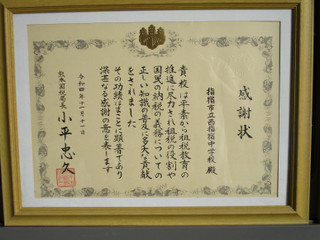 感謝状
指宿市立西指宿中学校 殿
貴校は平素から租税教育の
推進に尽力され租税の役割や
国民の納税の義務についての
正しい知識の普及に多大な貢献
をされました
その功績はまことに顕著であり
深甚なる感謝の意を表します
令和四年十一月十一日
熊本国税局長 小平忠久